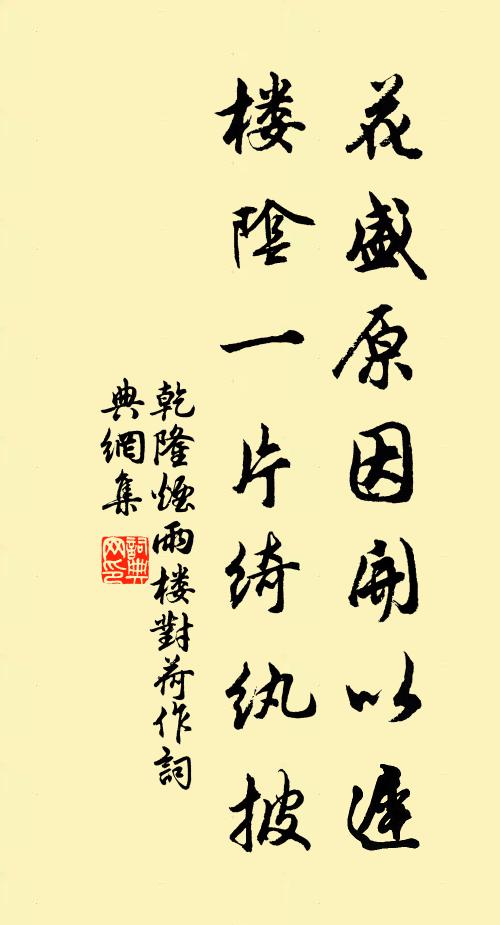 花盛原因開以遲
楼陰一片綺紈披
乾隆煙雨楼對荷作詞
典網集
詞典网印